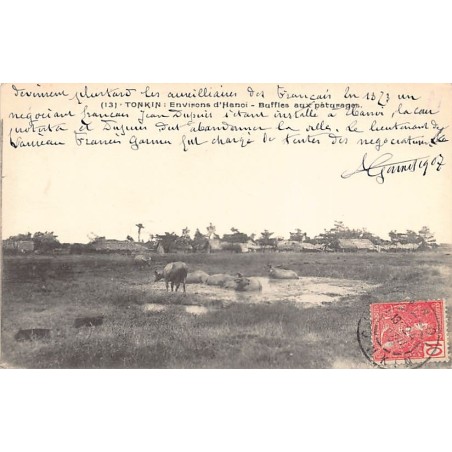 devinrent plustard les auxilliaires des Français En 1873 un
(13) - TONKIN : Environs d'Hanoi - Buffles aux pâturages.
négociant français Jean Dupuis s'étant installé à Hanoi la cour
protesta et Dupuis dut abandonner la ville. Le lieutenant de
Vaisseau Francis Garnier fut chargé de tenter des négociations
1907
10